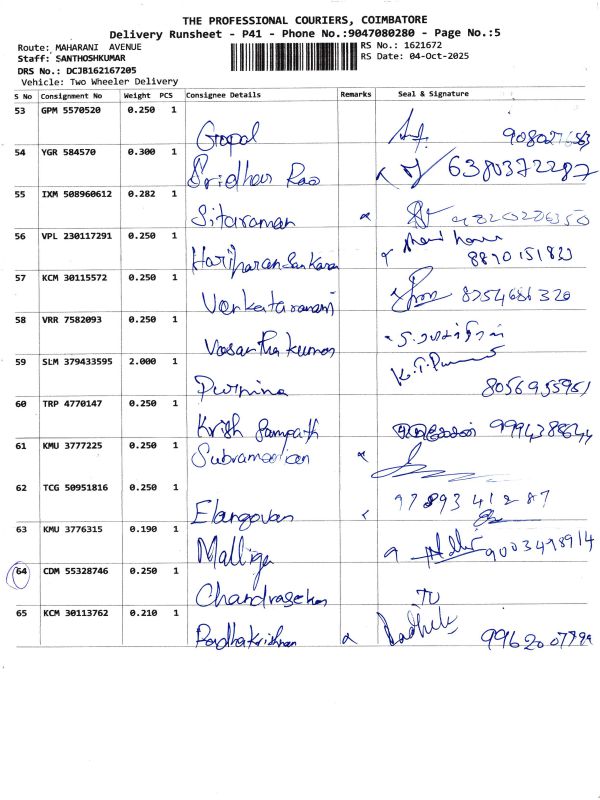 THE PROFESSIONAL COURIERS, COIMBATORE
Delivery Runsheet - P41 - Phone No.:9047080280 - Page No.:5
Route: MAHARANI AVENUE RS No.: 1621672
Staff: SANTHOSHKUMAR RS Date: 04-Oct-2025
DRS No.: DCJB162167205
Vehicle: Two Wheeler Delivery
S No Consignment No Weight PCS Consignee Details Remarks Seal & Signature
53 GPM 5570520 0.250 1
Gopal
54 YGR 584570 0.300 1
Sridhar Rao 6380372287
55 IXM 508960612 0.282 1
Sitaraman
56 VPL 230117291 0.250 1
Hariharan Sankaran
57 KCM 30115572 0.250 1
Venkataramani 8254686320
58 VRR 7582093 0.250 1
Vasanthakumar
59 SLM 379433595 2.000 1
Purnina 8056955961
60 TRP 4770147 0.250 1
Krish Sampath
61 KMU 3777225 0.250 1
Subramanian
62 TCG 50951816 0.250 1
Elangovan 9789341287
63 KMU 3776315 0.190 1
Malliga 9003498914
64 CDM 55328746 0.250 1
Chandrasekar
65 KCM 30113762 0.210 1
Radhakrishnan